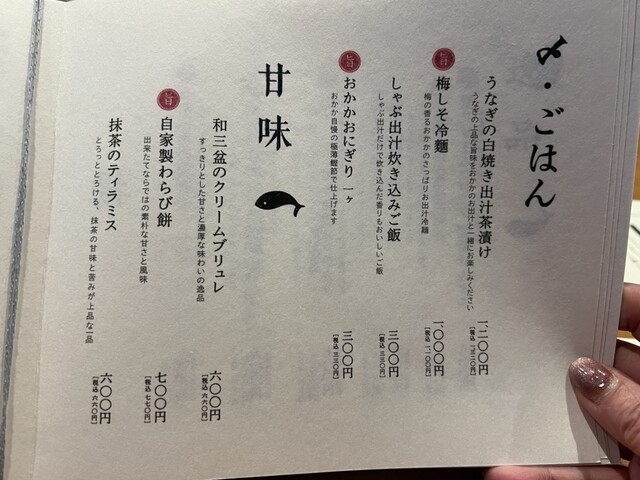 〆・ごはん
うなぎの白焼き出汁茶漬け
うなぎの上品な旨味をおかかのお出汁と一緒にお楽しみください
一、二〇〇円
［税込 一、三二〇円］
旨
梅しそ冷麺
梅の香るおかかのさっぱりお出汁冷麺
一、〇〇〇円
［税込 一、一〇〇円］
しゃぶ出汁炊き込みご飯
しゃぶ出汁だけで炊き込んだ香りもおいしいご飯
三〇〇円
［税込 三三〇円］
旨
おかかおにぎり 一ヶ
おかか自慢の極薄鰹節で仕上げます
三〇〇円
［税込 三三〇円］
甘味
和三盆のクリームブリュレ
すっきりとした甘さと濃厚な味わいの逸品
六〇〇円
［税込 六六〇円］
旨
自家製わらび餅
出来たてならではの素朴な甘さと風味
七〇〇円
［税込 七七〇円］
抹茶のティラミス
とろっととろける、抹茶の甘味と苦みが上品な一品
六〇〇円
［税込 六六〇円］